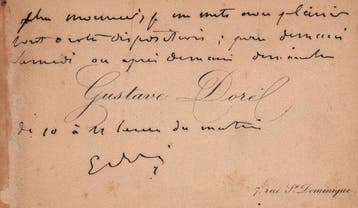 plus monsieur, je me mets avec plaisir
tout à votre disposition ; pour demain
samedi ou après demain dimanche
Gustave Doré
de 10 à 11 heures du matin
7, rue St. Dominique.